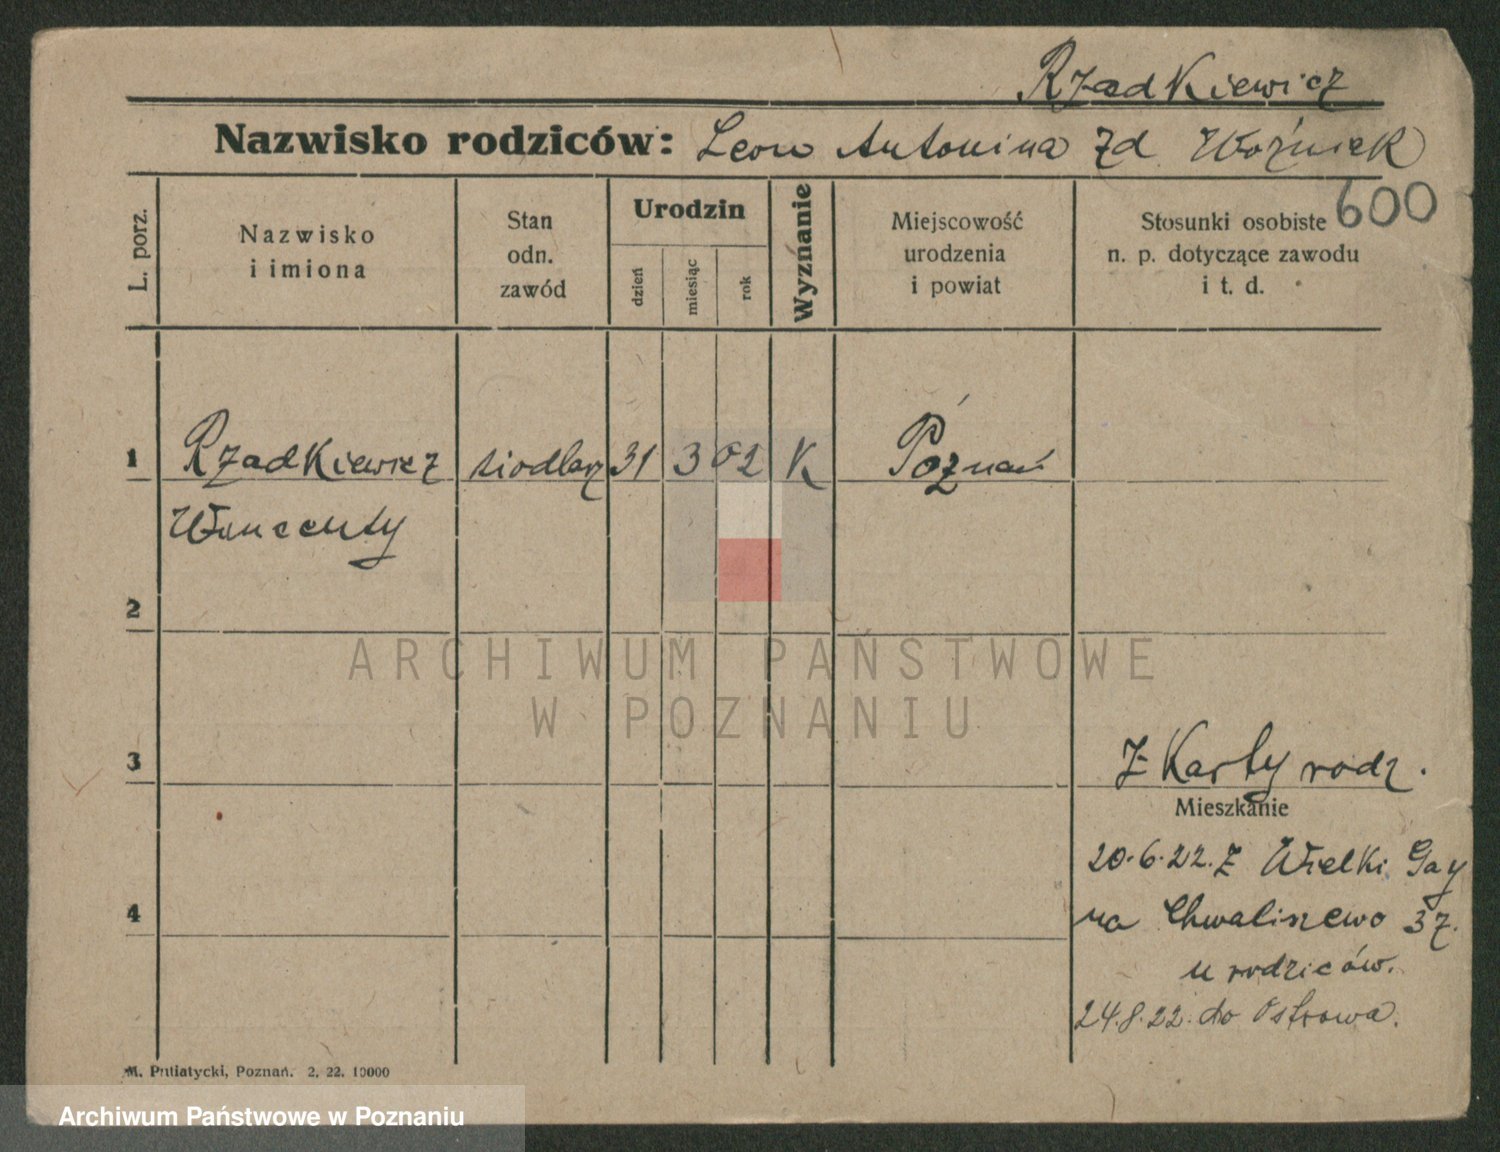 Rzadkiewicz
Nazwisko rodziców: Leon Antonina zd Woźniak
600
L. porz.
Nazwisko
i imiona
Stan
odn.
zawód
Urodzin
dzień
miesiąc
rok
Wyznanie
Miejscowość
urodzenia
i powiat
Stosunki osobiste
n. p. dotyczące zawodu
i t. d.
1 Rzadkiewicz siodlarz 31 3 02 K Poznań
Wincenty
2
3
Z Karty rodz.
Mieszkanie
20.6.22. Z Wielki Gay
4
na Chwaliszewo 37.
u rodziców.
24.8.22. do Ostrowa.
M. Putiatycki, Poznań. 2. 22. 10000
ARCHIWUM PAŃSTWOWE
W POZNANIU
Archiwum Państwowe w Poznaniu